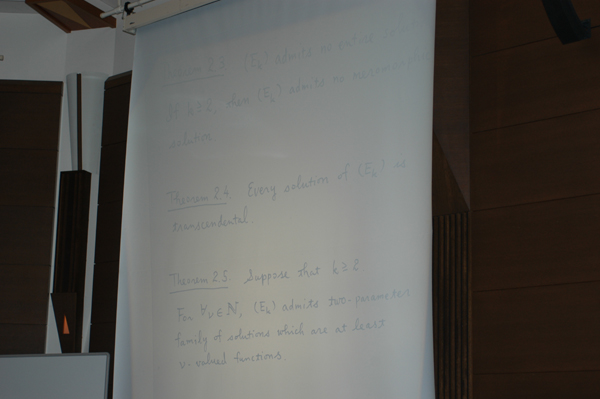 Theorem 2.3. (E_k) admits no entire
If k ≥ 2, then (E_k) admits no meromorphic
solution.
Theorem 2.4. Every solution of (E_k) is
transcendental
Theorem 2.5. Suppose that k ≥ 2
For ∀ν ∈ ℕ, (E_k) admits two-parameter
family of solutions which are at least
ν-valued functions.